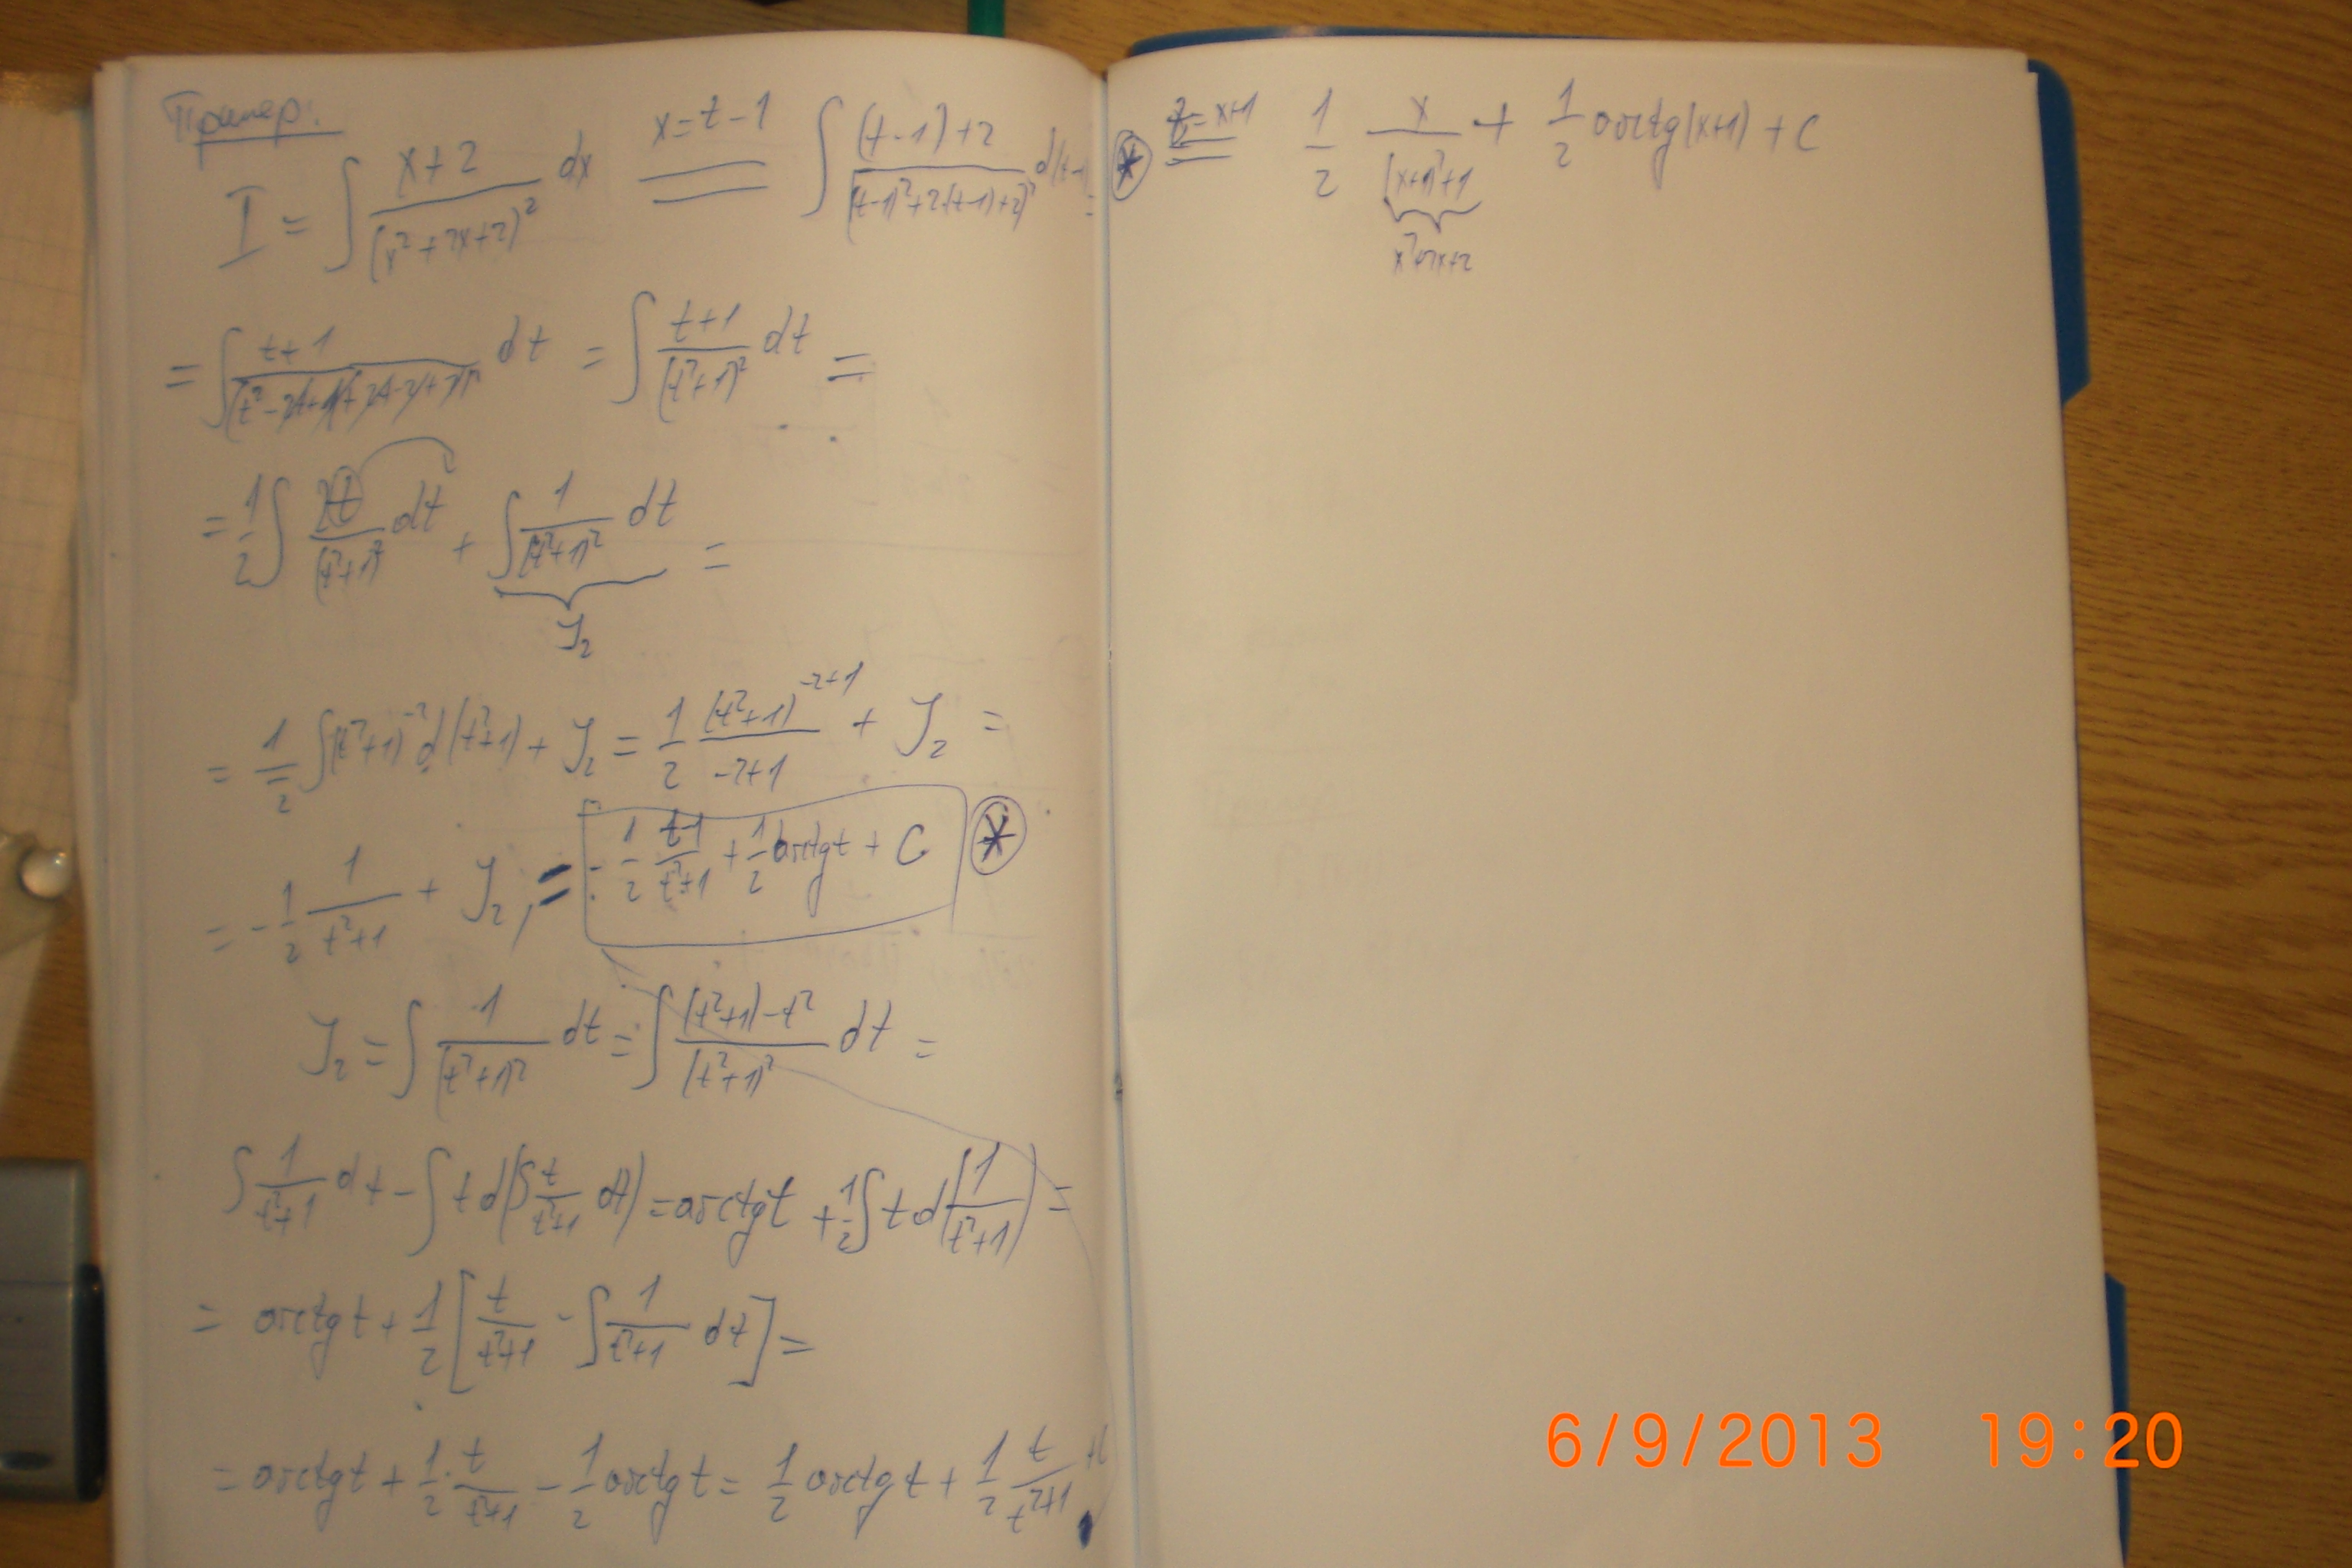 Пример:
I = ∫ (x+2)/(x²+2x+2)² dx = (x=t-1) ∫ ((t-1)+2)/((t-1)²+2(t-1)+2)² d(t-1) =
= ∫ (t+1)/(t²-2t+1+2t-2+2)² dt = ∫ (t+1)/(t²+1)² dt =
= 1/2 ∫ 2t/(t²+1)² dt + ∫ 1/(t²+1)² dt =
J₂
= 1/2 ∫ (t²+1)⁻² d(t²+1) + J₂ = 1/2 (t²+1)⁻²⁺¹/(-2+1) + J₂ =
= -1/2 1/(t²+1) + J₂, = 1/2 (t-1)/(t²+1) + 1/2 arctg t + C *
J₂ = ∫ 1/(t²+1)² dt = ∫ ((t²+1)-t²)/(t²+1)² dt =
∫ 1/(t²+1) dt - ∫ t d(∫ t/(t²+1) dt) = arctg t + 1/2 ∫ t d(1/(t²+1)) =
= arctg t + 1/2 [t/(t²+1) - ∫ 1/(t²+1) dt] =
= arctg t + 1/2 · t/(t²+1) - 1/2 arctg t = 1/2 arctg t + 1/2 t/(t²+1) +C
* t=x+1 = 1/2 x/((x+1)²+1) + 1/2 arctg(x+1) + C
x²+2x+2
6/9/2013 19:20